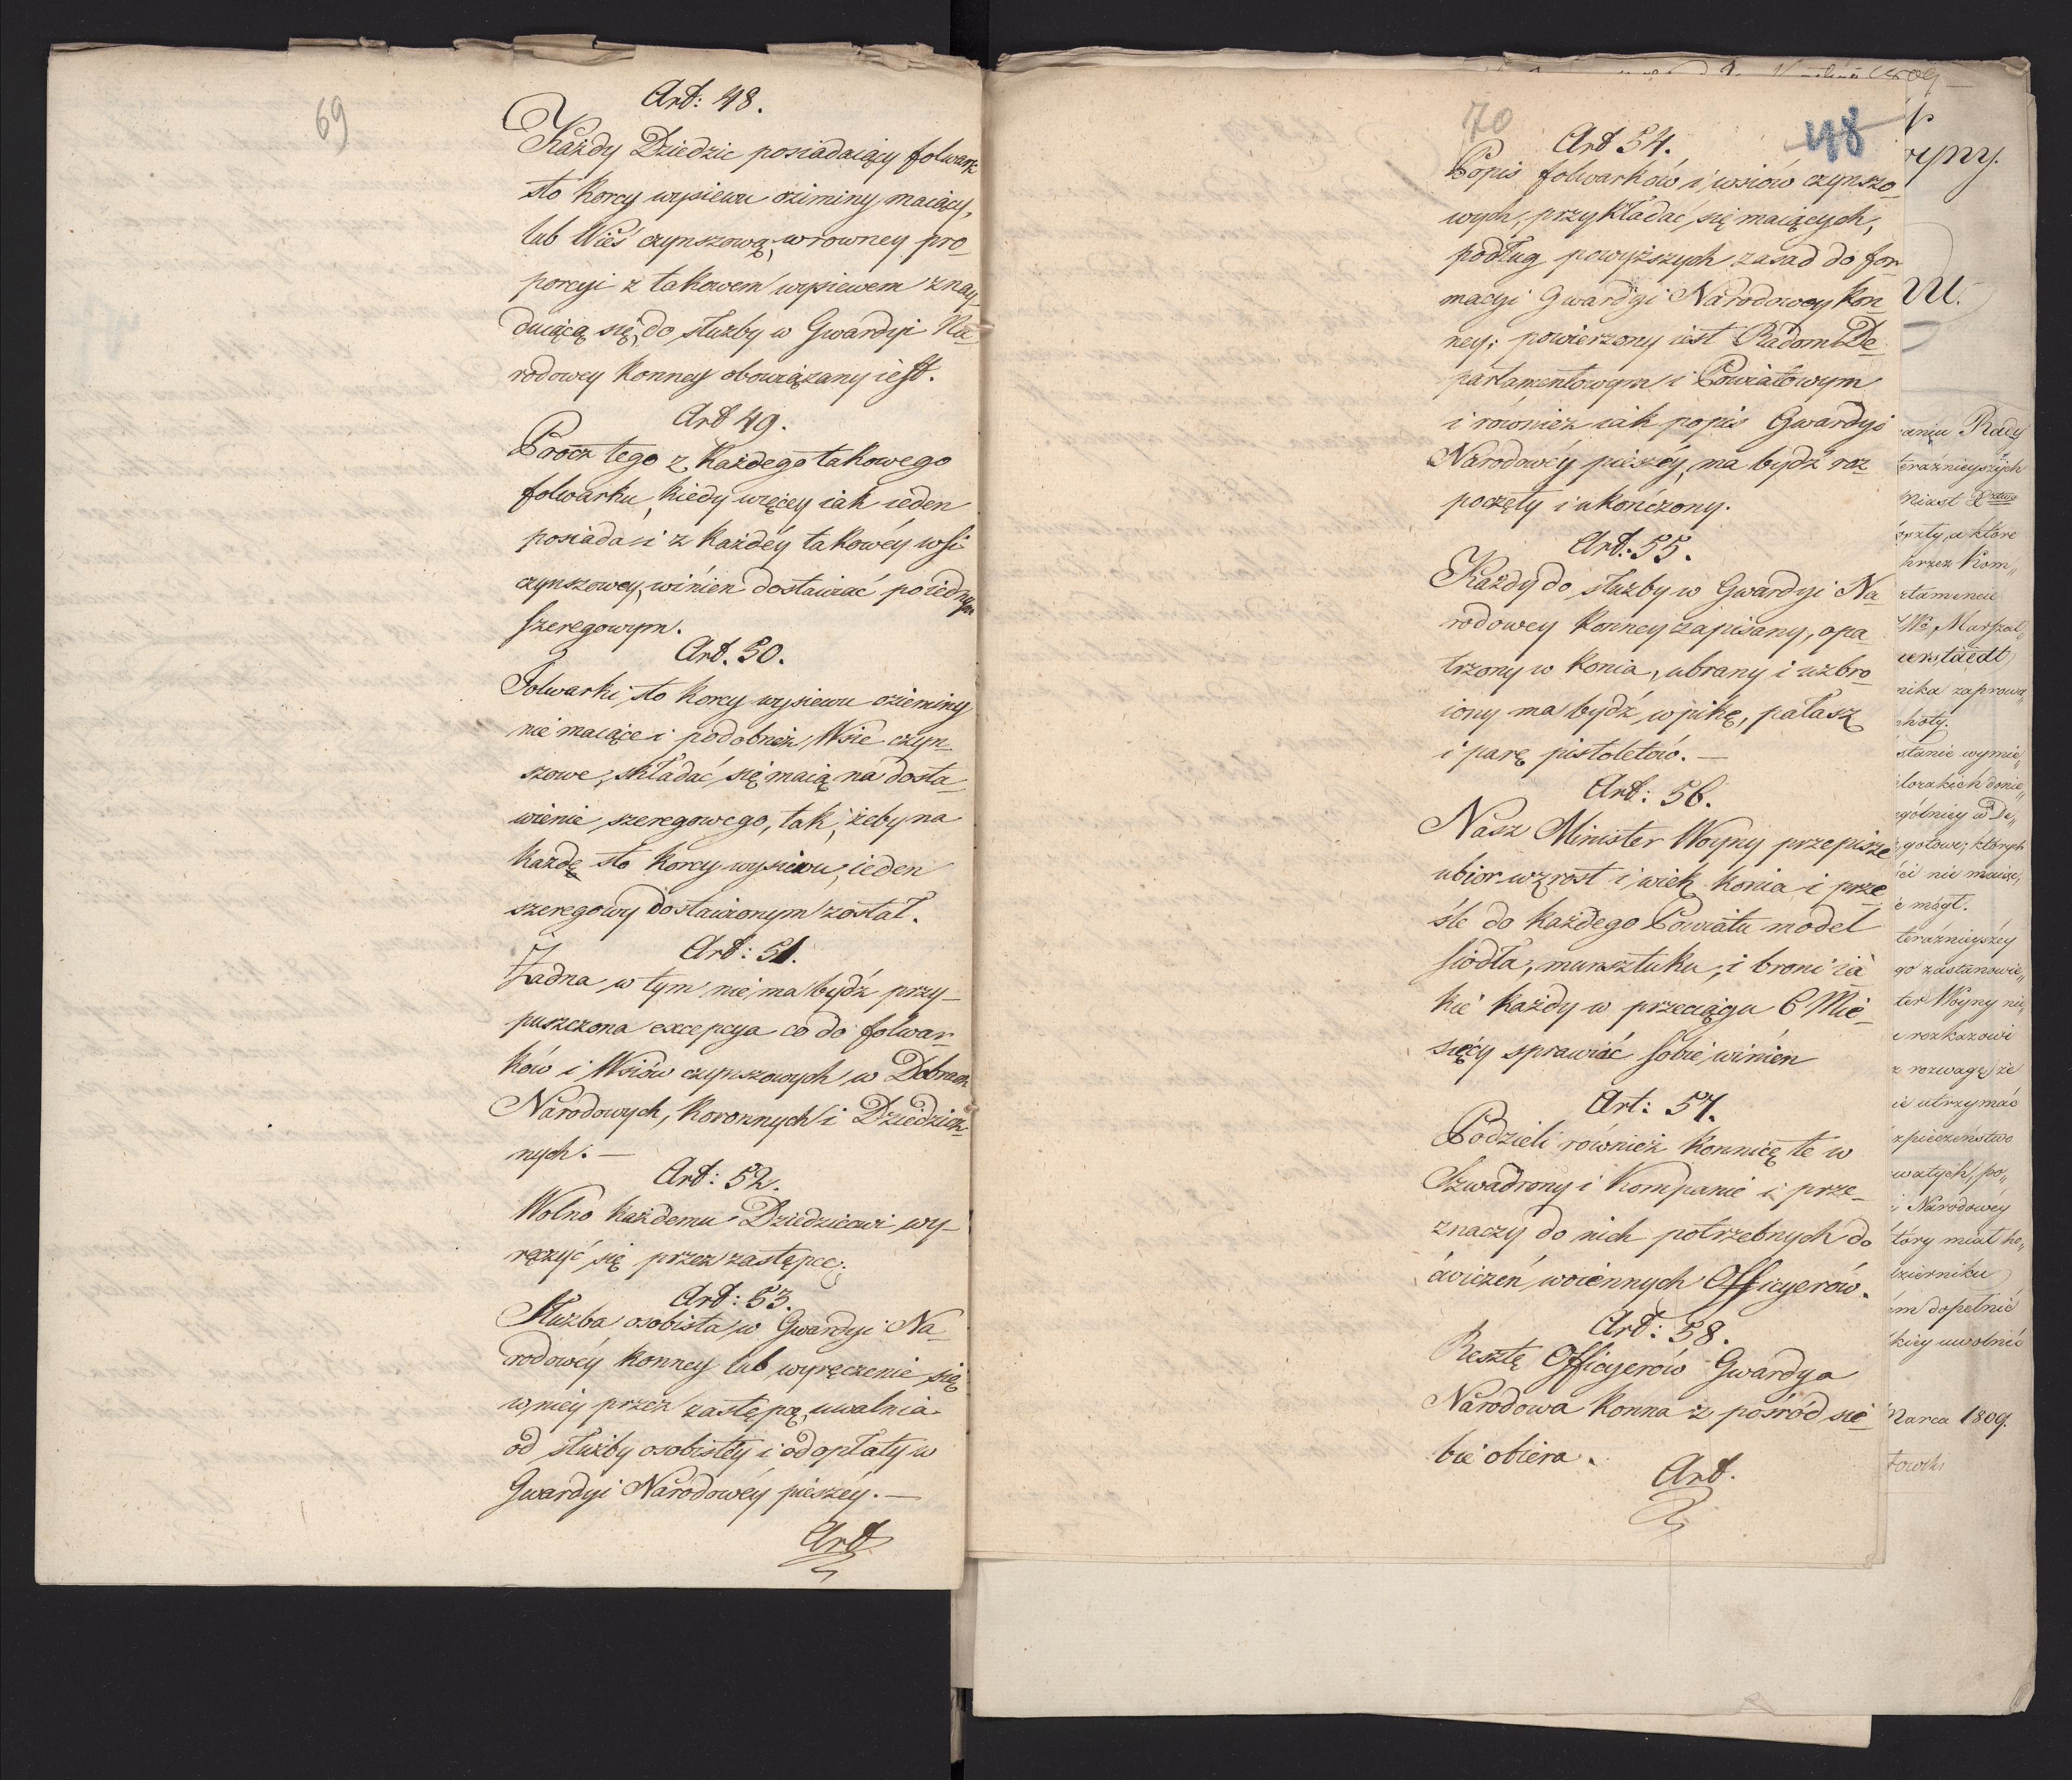 69
Art: 48.
Każdy Dziedzic posiadaiący folwark
sto korcy wysiewu oziminy maiący,
lub Wieś czynszową, w rowney pro
porcyi z takowem wysiewem znay
duiącą się, do służby w Gwardyi Na
rodowey Konney obowiązany iest.
Art 49.
Procz tego z każdego takowego
folwarku, kiedy więcey iak ieden
posiada i z każdéy takowéy wsi
czynszowey, winien dostawiać po iednym
szeregowym.
Art. 50.
Folwarki sto korcy wysiewu oziminy
nie maiące i podobnież Wsie czyn
szowe, składać się maią na dosta
wienie szeregowego, tak, żeby na
każde sto korcy wysiewu, ieden
szeregowy dostawionym został.
Art: 51.
Żadna w tym nie ma bydź przy-
puszczona excepcya co do folwar-
ków i Wsiów czynszowych w Dobrach
Narodowych, Koronnych i Dziedzicz
nych. —
Art: 52.
Wolno każdemu Dziedzicowi wy-
ręczyć się przez zastępcę.
Art: 53.
Służba osobista w Gwardyi Na
rodowéy konney lub wyręczenie się
w niéy przez zastępcę, uwalnia
od służby osobistéy i od opłaty w
Gwardyi Narodowéy pieszéy. —
Art
70
48
Art 54.
Popis folwarków i wsiów czynszo
wych, przykładać się maiących,
podług powyższych zasad do for
macyi Gwardyi Narodowey kon
ney; powierzony iest Radom De
partamentowym i Powiatowym
i również iak popis Gwardyi
Narodowéy pieszéy, ma bydź roz
poczęty i ukończony.
Art: 55.
Każdy do służby w Gwardyi Na
rodowey Konney zapisany, opa
trzony w konia, ubrany i uzbro
iony ma bydź w pikę, pałasz
i parę pistoletów. —
Art: 56.
Nasz Minister Woyny przepisze
ubior wzrost i wiek konia i prze
śle do każdego Powiatu model
siodła, munsztuku, i broni ia
kie każdy w przeciągu 6 Mie-
sięcy sprawiać sobie winien
Art: 57.
Podzieli również konnicę te w
Szwadrony i Kompanie i prze-
znaczy do nich potrzebnych do
ćwiczeń woiennych Officyerów.
Art: 58.
Resztę Officyerów Gwardya
Narodowa konna z pośród sie
bie obiera.
Art.
aniu Rady
teraźnieyszych
miast
a które
przez Kom„
nika zaprowa„
stanie wymie„
gotowe, których
ści nie
mógł.
teraźnieyszéy
go zastanowie„
ter Woyny nie„
rozkazowi
rozwagę, że
utrzymać
zpieczeństwo
Narodowéy
tóry miał
dziernika
dopełnić
kiey uwolnić
Marca 1809.